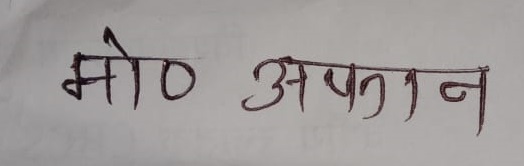 मो० अफान